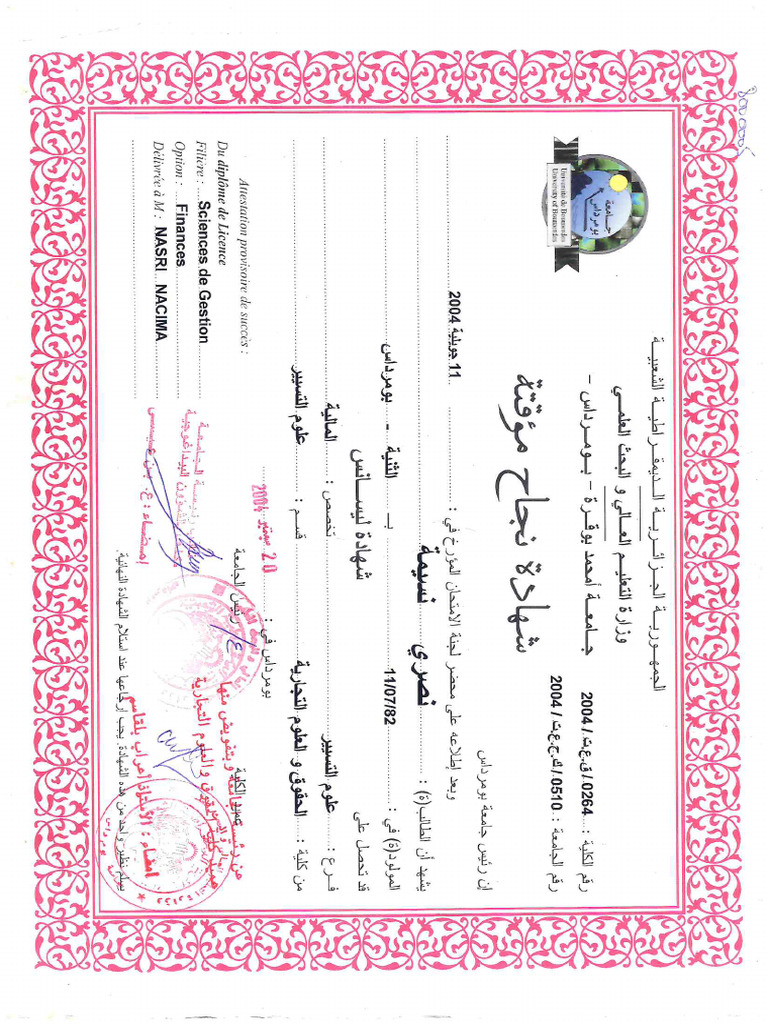 الجمهورية الجزائرية الديمقراطية الشعبية
وزارة التعليم العالي و البحث العلمي
جامعة أمحمد بوقرة - بومرداس -
جامعة بومرداس
Université de Boumerdes
University of Boumerdes
رقم الكلية : 0264 / ق.ع.ت / 2004
رقم الجامعة : 0510 / ك.ح.ع.ت / 2004
شهادة نجاح مؤقتة
إن رئيس جامعة بومرداس
وبعد إطلاعه على محضر لجنة الامتحان المؤرخ في : 11 جويلية 2004
يشهد أن الطالب(ة) : نصري نسيمة
المولود(ة) في : 11/07/82 بـ الثنية - بومرداس
قد تحصل على شهادة ليسانس
فرع : علوم التسيير تخصص : المالية
من كلية : الحقوق و العلوم التجارية قسم : علوم التسيير
بومرداس في : 20 سبتمبر 2004
عميد الكلية رئيس الجامعة
Attestation provisoire de succès :
Du diplôme de Licence
Filière : Sciences de Gestion
Option : Finances
Délivrée à M : NASRI NACIMA
يسلم نظير واحد من هذه الشهادة. يجب إرجاعها عند استلام الشهادة النهائية